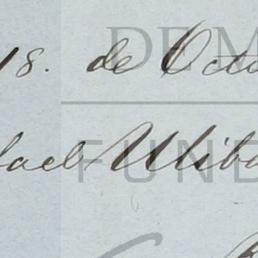 18. de Octu
fael Uriba
DEM
FUND